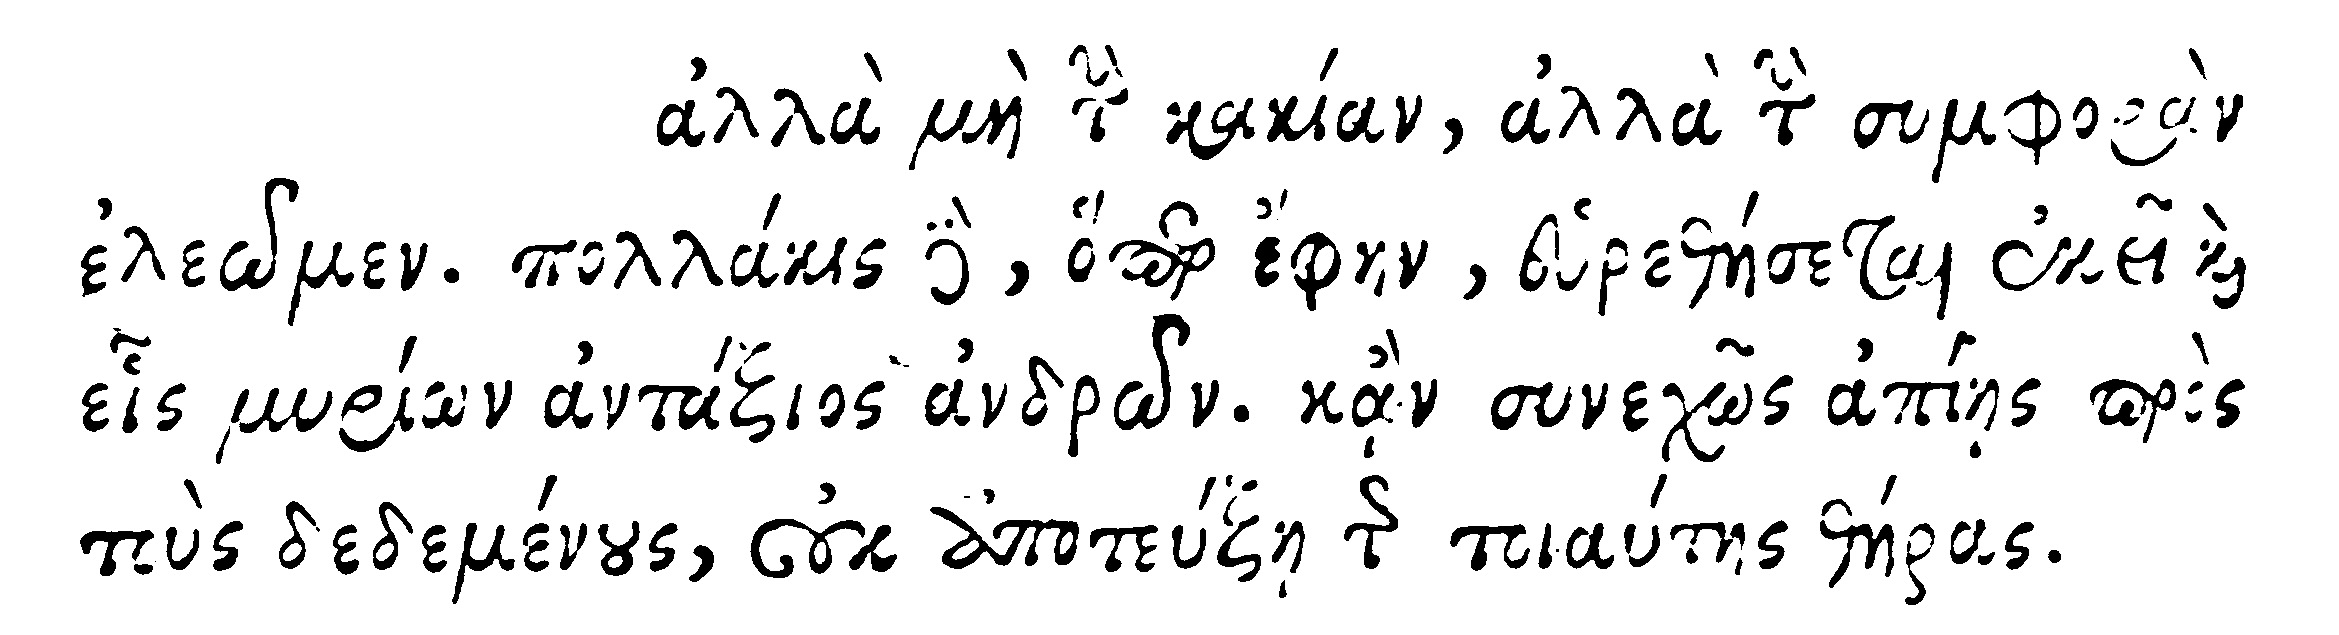 ἀλλὰ μὴ τὴν κακίαν, ἀλλὰ τὴν συμφορὰν
ἐλεῶμεν. πολλάκις δὲ, ὅπερ ἔφην, εὑρεθήσεται ἐκεῖ καὶ
εἷς μυρίων ἀντάξιος ἀνδρῶν. κᾂν συνεχῶς ἀπίῃς πρὸς
τοὺς δεδεμένους, οὐκ ἀποτεύξῃ τῆς τοιαύτης θήρας.